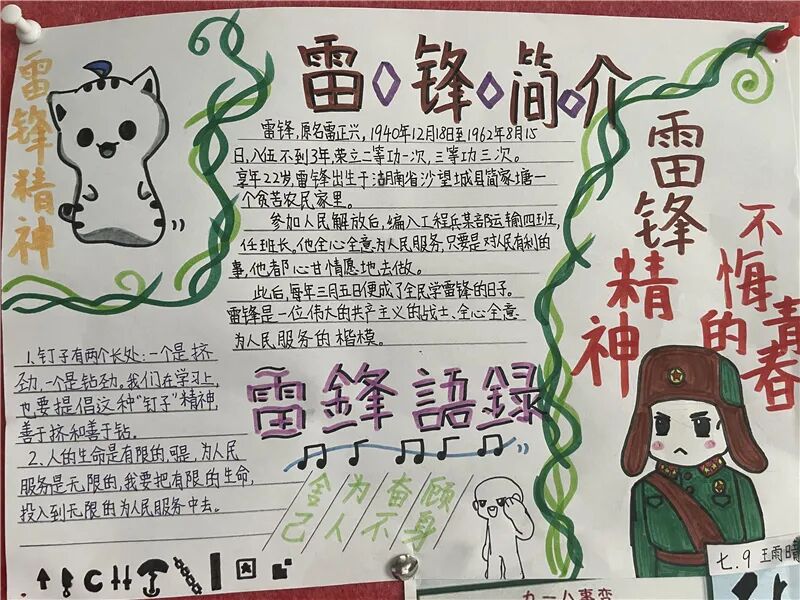 雷锋精神
雷锋简介
雷锋,原名雷正兴,1940年12月18日至1962年8月15
日,入伍不到3年,荣立二等功一次,三等功三次。
享年22岁,雷锋出生于湖南省沙望城县简家塘一
个贫苦农民家里。
参加人民解放后,编入工程兵某部运输四班,
任班长。他全心全意为人民服务,只要是对人民有利的
事,他都心甘情愿地去做。
此后,每年三月五日便成了全民学雷锋的日子。
雷锋是一位伟大的共产主义的战士、全心全意
为人民服务的楷模。
雷锋精神
不悔的青春
1.钉子有两个长处:一个是挤
劲,一个是钻劲。我们在学习上,
也要提倡这种"钉子"精神,
善于挤和善于钻。
2.人的生命是有限的,可是,为人民
服务是无限的,我要把有限的生命,
投入到无限的为人民服务中去。
雷鋒語録
舍为奋顾
己人不身
七.9 王雨
九一八事变